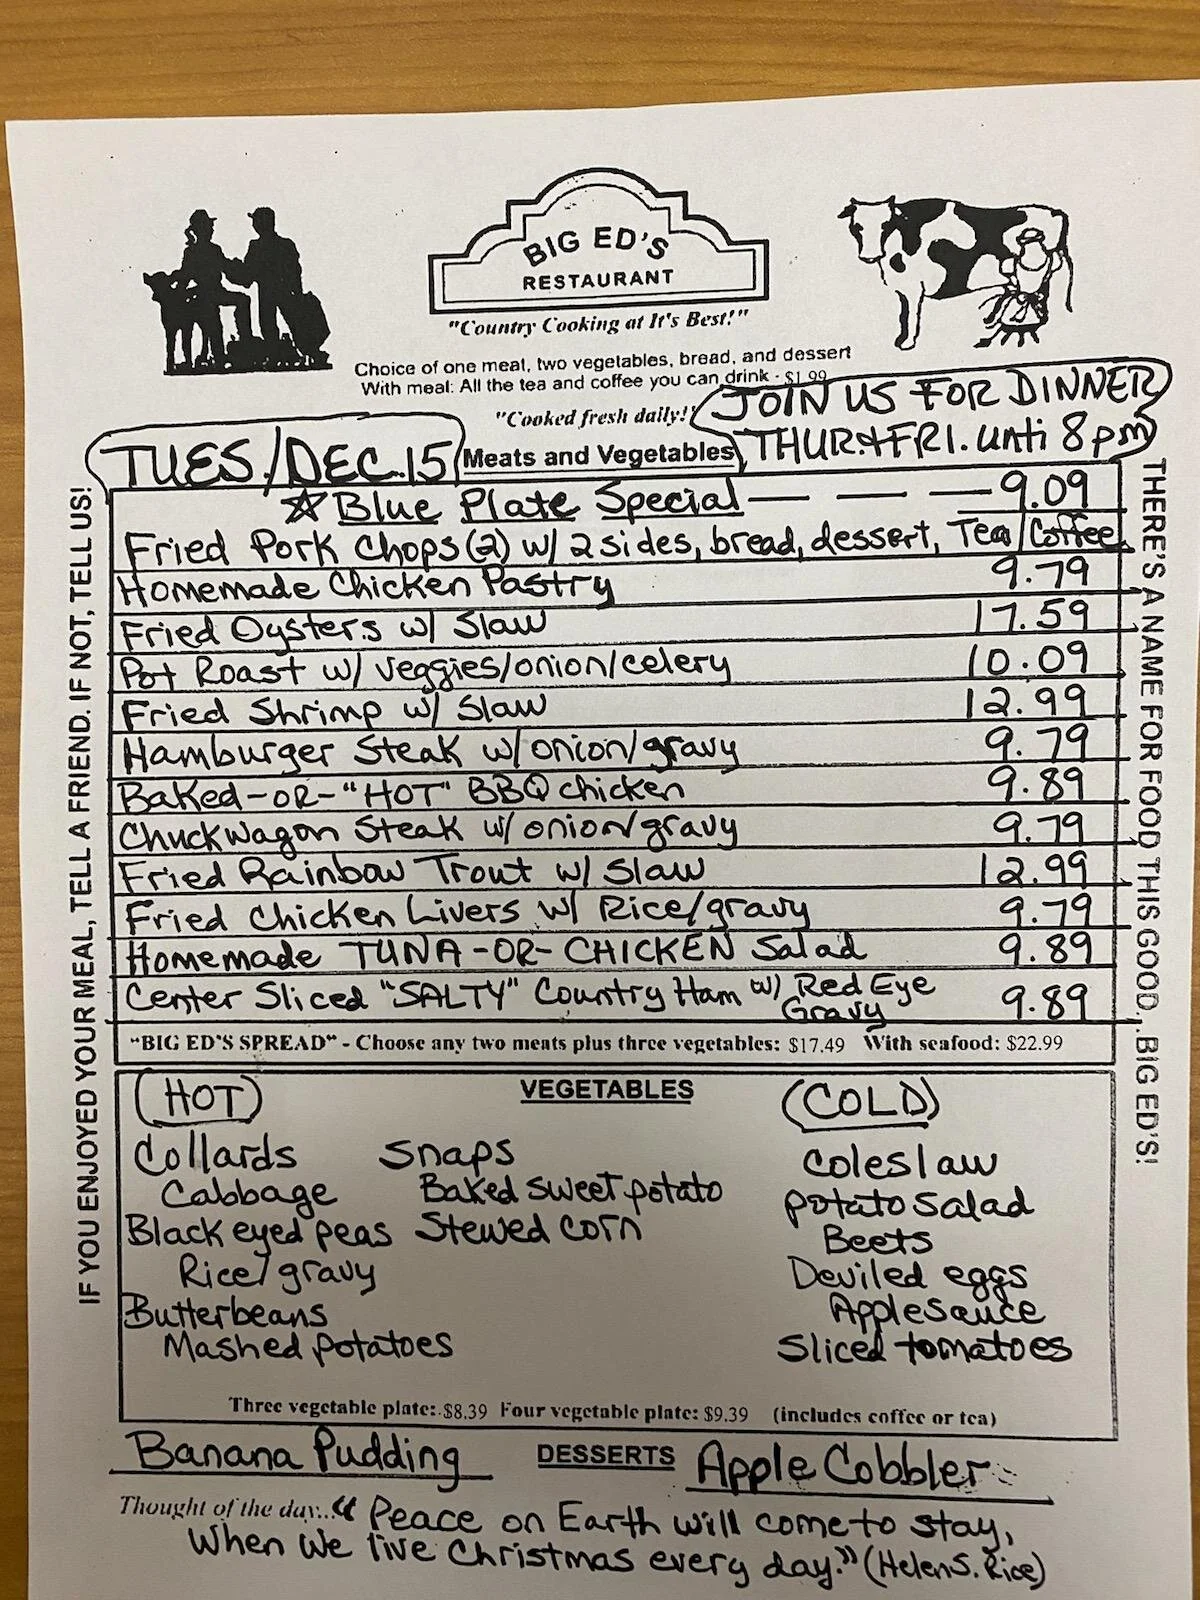 BIG ED'S
RESTAURANT
"Country Cooking at It's Best!"
Choice of one meal, two vegetables, bread, and dessert
With meal: All the tea and coffee you can drink - $1.99
"Cooked fresh daily!"
JOIN US FOR DINNER
THUR.+FRI. until 8pm
TUES./DEC.15
Meats and Vegetables
☆ Blue Plate Special — — — — 9.09
Fried Pork Chops(2) w/ 2 sides, bread, dessert, Tea/Coffee
Homemade Chicken Pastry 9.79
Fried Oysters w/ Slaw 17.59
Pot Roast w/ veggies/onion/celery 10.09
Fried Shrimp w/ Slaw 12.99
Hamburger Steak w/onion/gravy 9.79
Baked-OR-"HOT" BBQ chicken 9.89
Chuckwagon Steak w/ onion/gravy 9.79
Fried Rainbow Trout w/ Slaw 12.99
Fried Chicken Livers w/ Rice/gravy 9.79
Homemade TUNA-OR-CHICKEN Salad 9.89
Center Sliced "SALTY" Country Ham w/ Red Eye Gravy 9.89
"BIG ED'S SPREAD" - Choose any two meats plus three vegetables: $17.49 With seafood: $22.99
(HOT) VEGETABLES (COLD)
Collards Snaps Coleslaw
Cabbage Baked sweet potato Potato Salad
Black eyed peas Stewed corn Beets
Rice/gravy Deviled eggs
Butterbeans Applesauce
Mashed potatoes Sliced tomatoes
Three vegetable plate: $8.39 Four vegetable plate: $9.39 (includes coffee or tea)
Banana Pudding DESSERTS Apple Cobbler
Thought of the day..." Peace on Earth will come to stay,
When we live Christmas every day." (Helen S. Rice)
IF YOU ENJOYED YOUR MEAL, TELL A FRIEND. IF NOT, TELL US!
THERE'S A NAME FOR FOOD THIS GOOD...BIG ED'S!